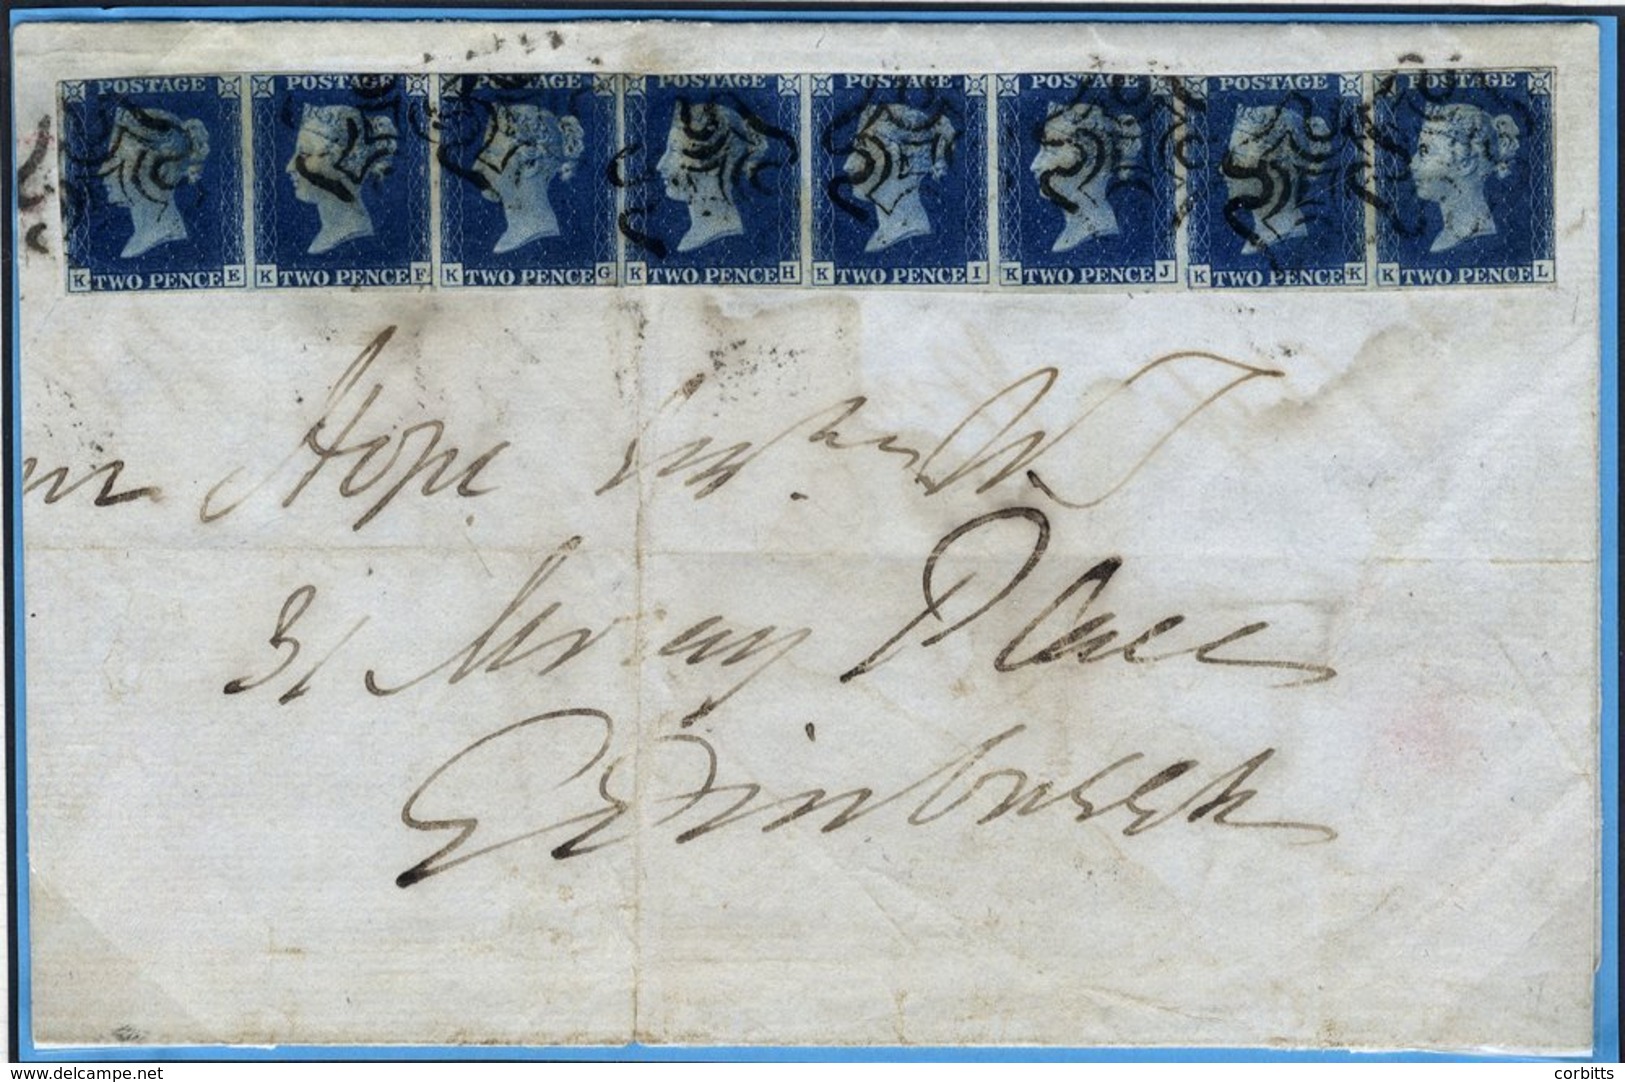 POSTAGE POSTAGE POSTAGE POSTAGE POSTAGE POSTAGE POSTAGE POSTAGE
K TWO PENCE E K TWO PENCE F K TWO PENCE G K TWO PENCE H K TWO PENCE I K TWO PENCE J K TWO PENCE K K TWO PENCE L
Hope
31 Moray Place
Edinburgh
www.delcampe.net
corbitts